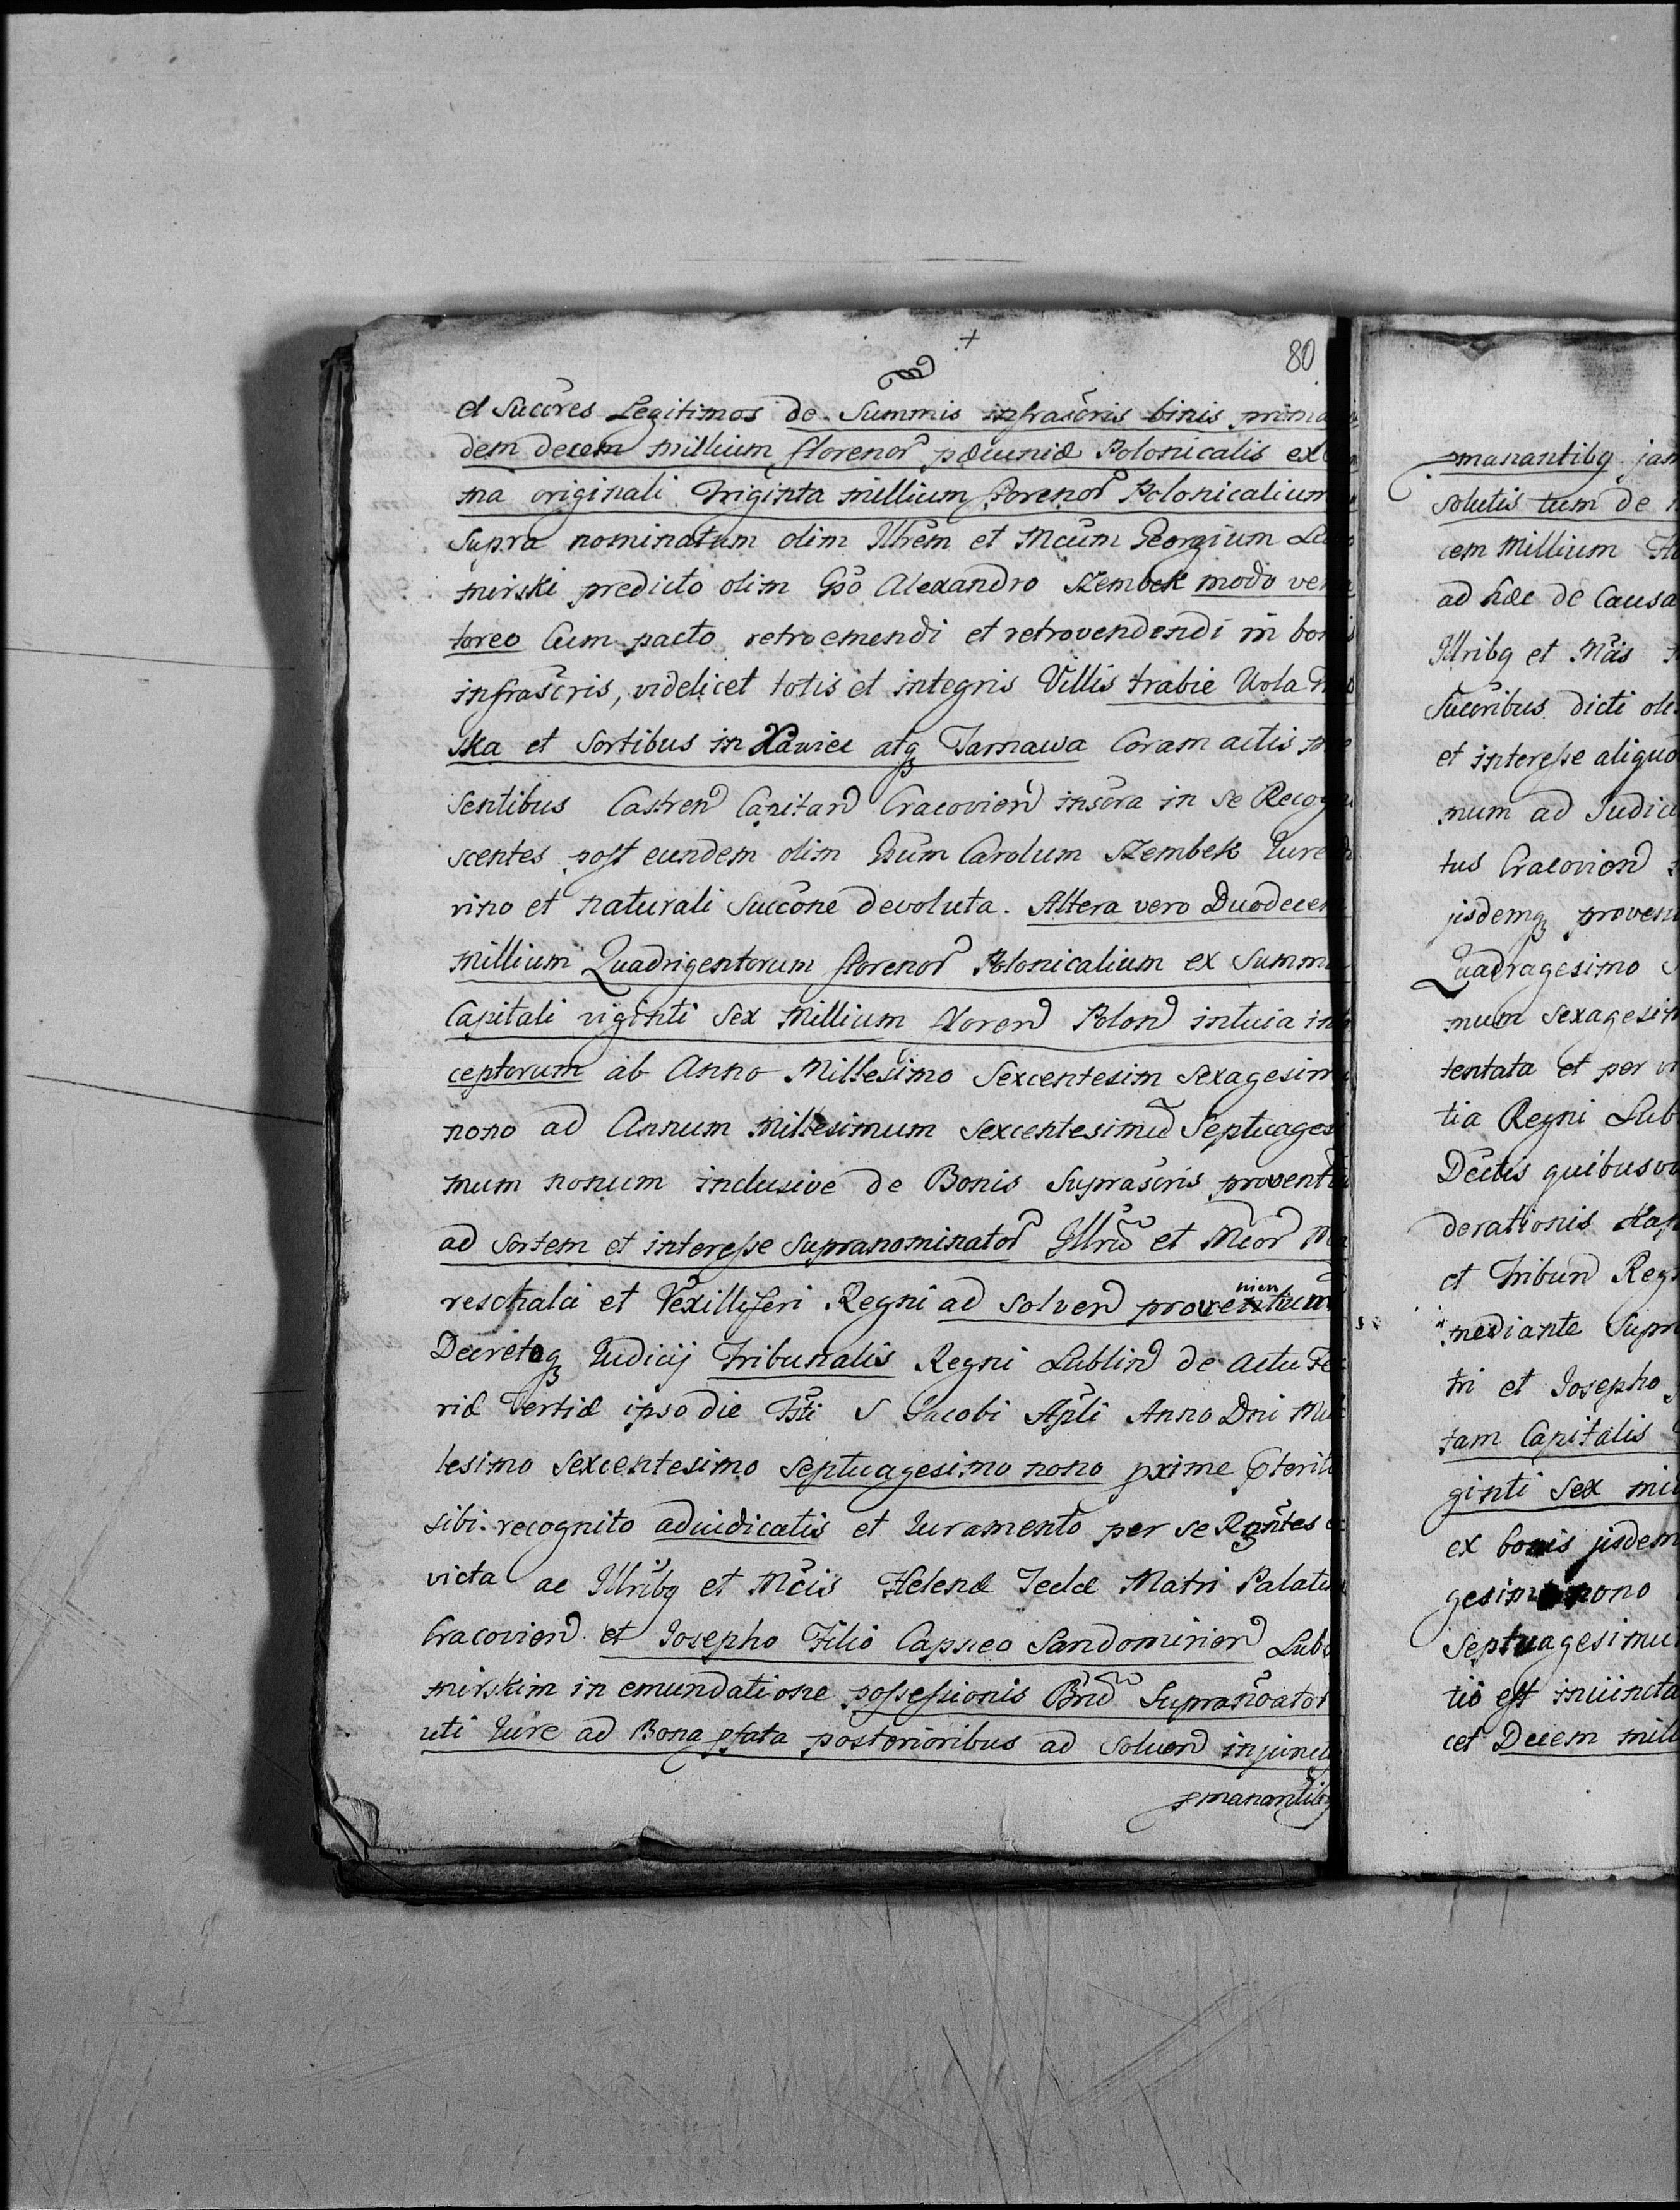 80
et Succres Legitimos de Summis infrascris binis prima
dem decem millium florenor pecuniæ Polonicalis ex
ma originali Triginta millium florenor Polonicalium
Supra nominatum olim Illrem et Mcum Georgium Lu
mirski predicto olim Gso Alexandro Szembek modo ven
toreo Cum pacto retroemendi et retrovendendi in bonis
infrascris, videlicet totis et integris Villis trabie Wola
ska et Sortibus in Xawice atq Tarnawa Coram actis pre
sentibus Castren Capitan Cracovien inscra in se Recogn
scentes post eundem olim Gsum Carolum Szembek Iure
vino et naturali Succone devoluta. Altera vero Duodecem
millium Quadrigentorum florenor Polonicalium ex Summa
Capitali viginti Sex Millium Floren Polon intuia in
ceptorum ab Anno Millesimo Sexcentesim Sexagesim
nono ad Annum Millesimum Sexcentesimu Septuagesi
mum nonum inclusive de Bonis Suprascris proventu
ad Sortem et interesse supranominator Illriu et Mcor Ma
reschalci et Vexilliferi Regni ad Solven proventuum
nien
Decretoq Iudicij Tribunalis Regni Lublin de actu Fe
riæ Tertiæ ipso die Fsti S Iacobi Apli Anno Dni Mil
lesimo Sexcentesimo Septuagesimo nono pxime pterito
sibi recognito adiudicatis et Iuramento per se Rgntes
victa ac Illribq et Mcis Helenæ Teclæ Matri Palatin
Cracovien et Iosepho Filio Capneo Sandomirien Lubo
mirskim in emundatione possessionis Bnru Supranoator
uti Iure ad Bona pfata posterioribus ad Solven injunct
pmanantibq
pmanantibq jam
solutis tum de
cem Millium Flo
ad hæc de Causa
Illribq et Mcis
Succribus dicti oli
et interesse aliquo
num ad Iudici
tus Cracovien
jisdemq proven
Quadragesimo
mum Sexagesim
tentata et per
tia Regni Lub
Dectis quibusvi
derationis
et Tribun Regn
mediante Supra
tri et Iosepho
tam Capitalis
ginti Sex mil
ex bonis jisdem
gesimo nono
Septuagesimu
tio est iniuncta
cet Decem mill